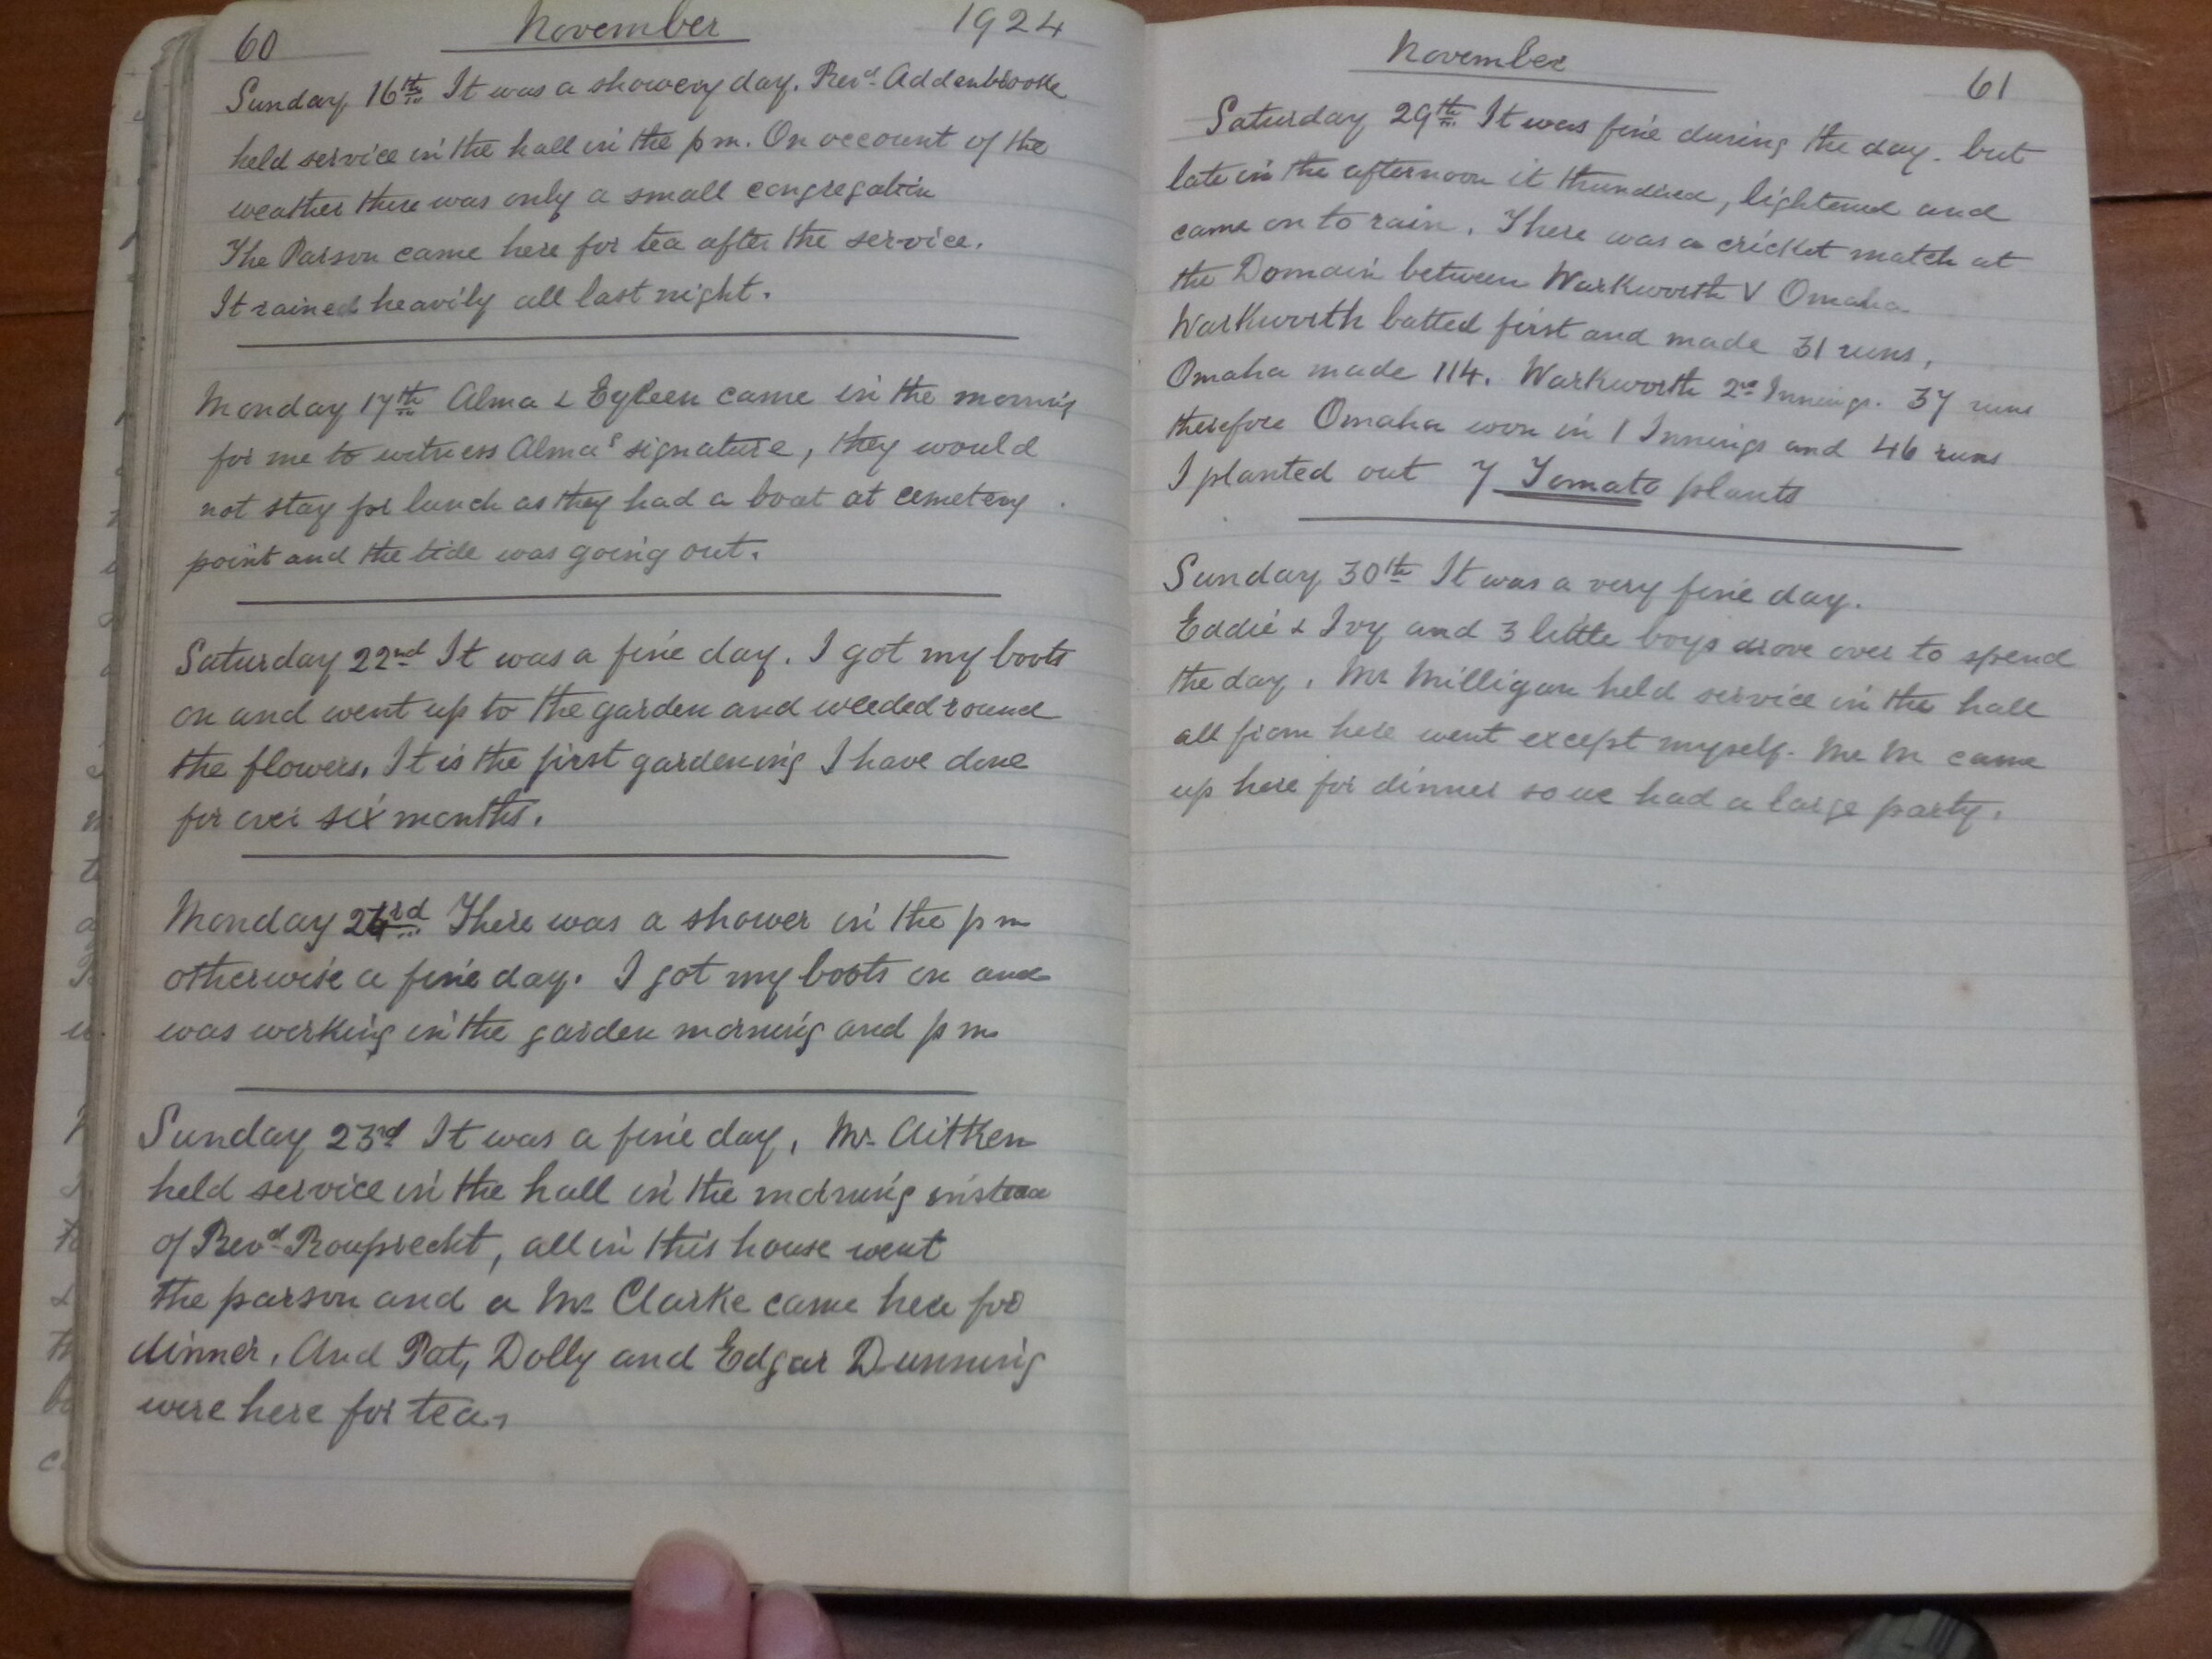 60 November 1924
Sunday 16th It was a showery day. Revd. Addenbrooke
held service in the hall in the p m. On account of the
weather there was only a small congregation
The Parson came here for tea after the service.
It rained heavily all last night.
Monday 17th Alma & Eyleen came in the morning
for me to witness Almas signature, they would
not stay for lunch as they had a boat at cemetery
point and the tide was going out.
Saturday 22nd It was a fine day. I got my boots
on and went up to the garden and weeded round
the flowers. It is the first gardening I have done
for over six months.
Monday 24rd There was a shower in the p m
otherwise a fine day. I got my boots on and
was working in the garden morning and p m
Sunday 23rd It was a fine day, Mr. Aitken
held service in the hall in the morning instead
of Revd. Rouprecht, all in this house went
the parson and a Mr Clarke came here for
dinner. And Pat, Dolly and Edgar Dunning
were here for tea.
November 61
Saturday 29th It was fine during the day. but
late in the afternoon it thundered, lightened and
came on to rain. There was a cricket match at
the Domain between Warkworth V Omaha
Warkworth batted first and made 31 runs,
Omaha made 114. Warkworth 2nd Innings. 37 runs
therefore Omaha won in 1 Innings and 46 runs
I planted out 7 Tomato plants
Sunday 30th It was a very fine day.
Eddie & Ivy and 3 little boys drove over to spend
the day. Mr Milligan held service in the hall
all from here went except myself. Mr M came
up here for dinner so we had a large party.